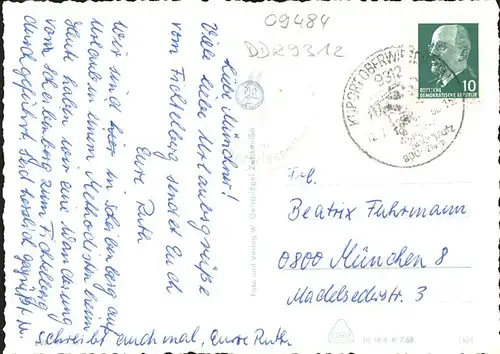 09484
DDR9312
Liebe Münchner!
Viele liebe Urlaubsgrüße
vom Fichtelberg sendet Euch
Eure Ruth
Wir sind hier in Scheibenberg auf
Urlaub in einem Methodistenheim
Heute haben wir eine Wanderung
vom Scheibenberg zum Fichtelberg
durchgeführt. Seid herzlich gegrüßt u.
schreibt auch mal, Eure Ruth.
Foto und Verlag W.
KURORT OBERWIESENTHAL
DEUTSCHE
DEMOKRATISCHE REPUBLIK
10
Beatrix Fuhrmann
8000 München 8
3
III 18 6 K 7 68